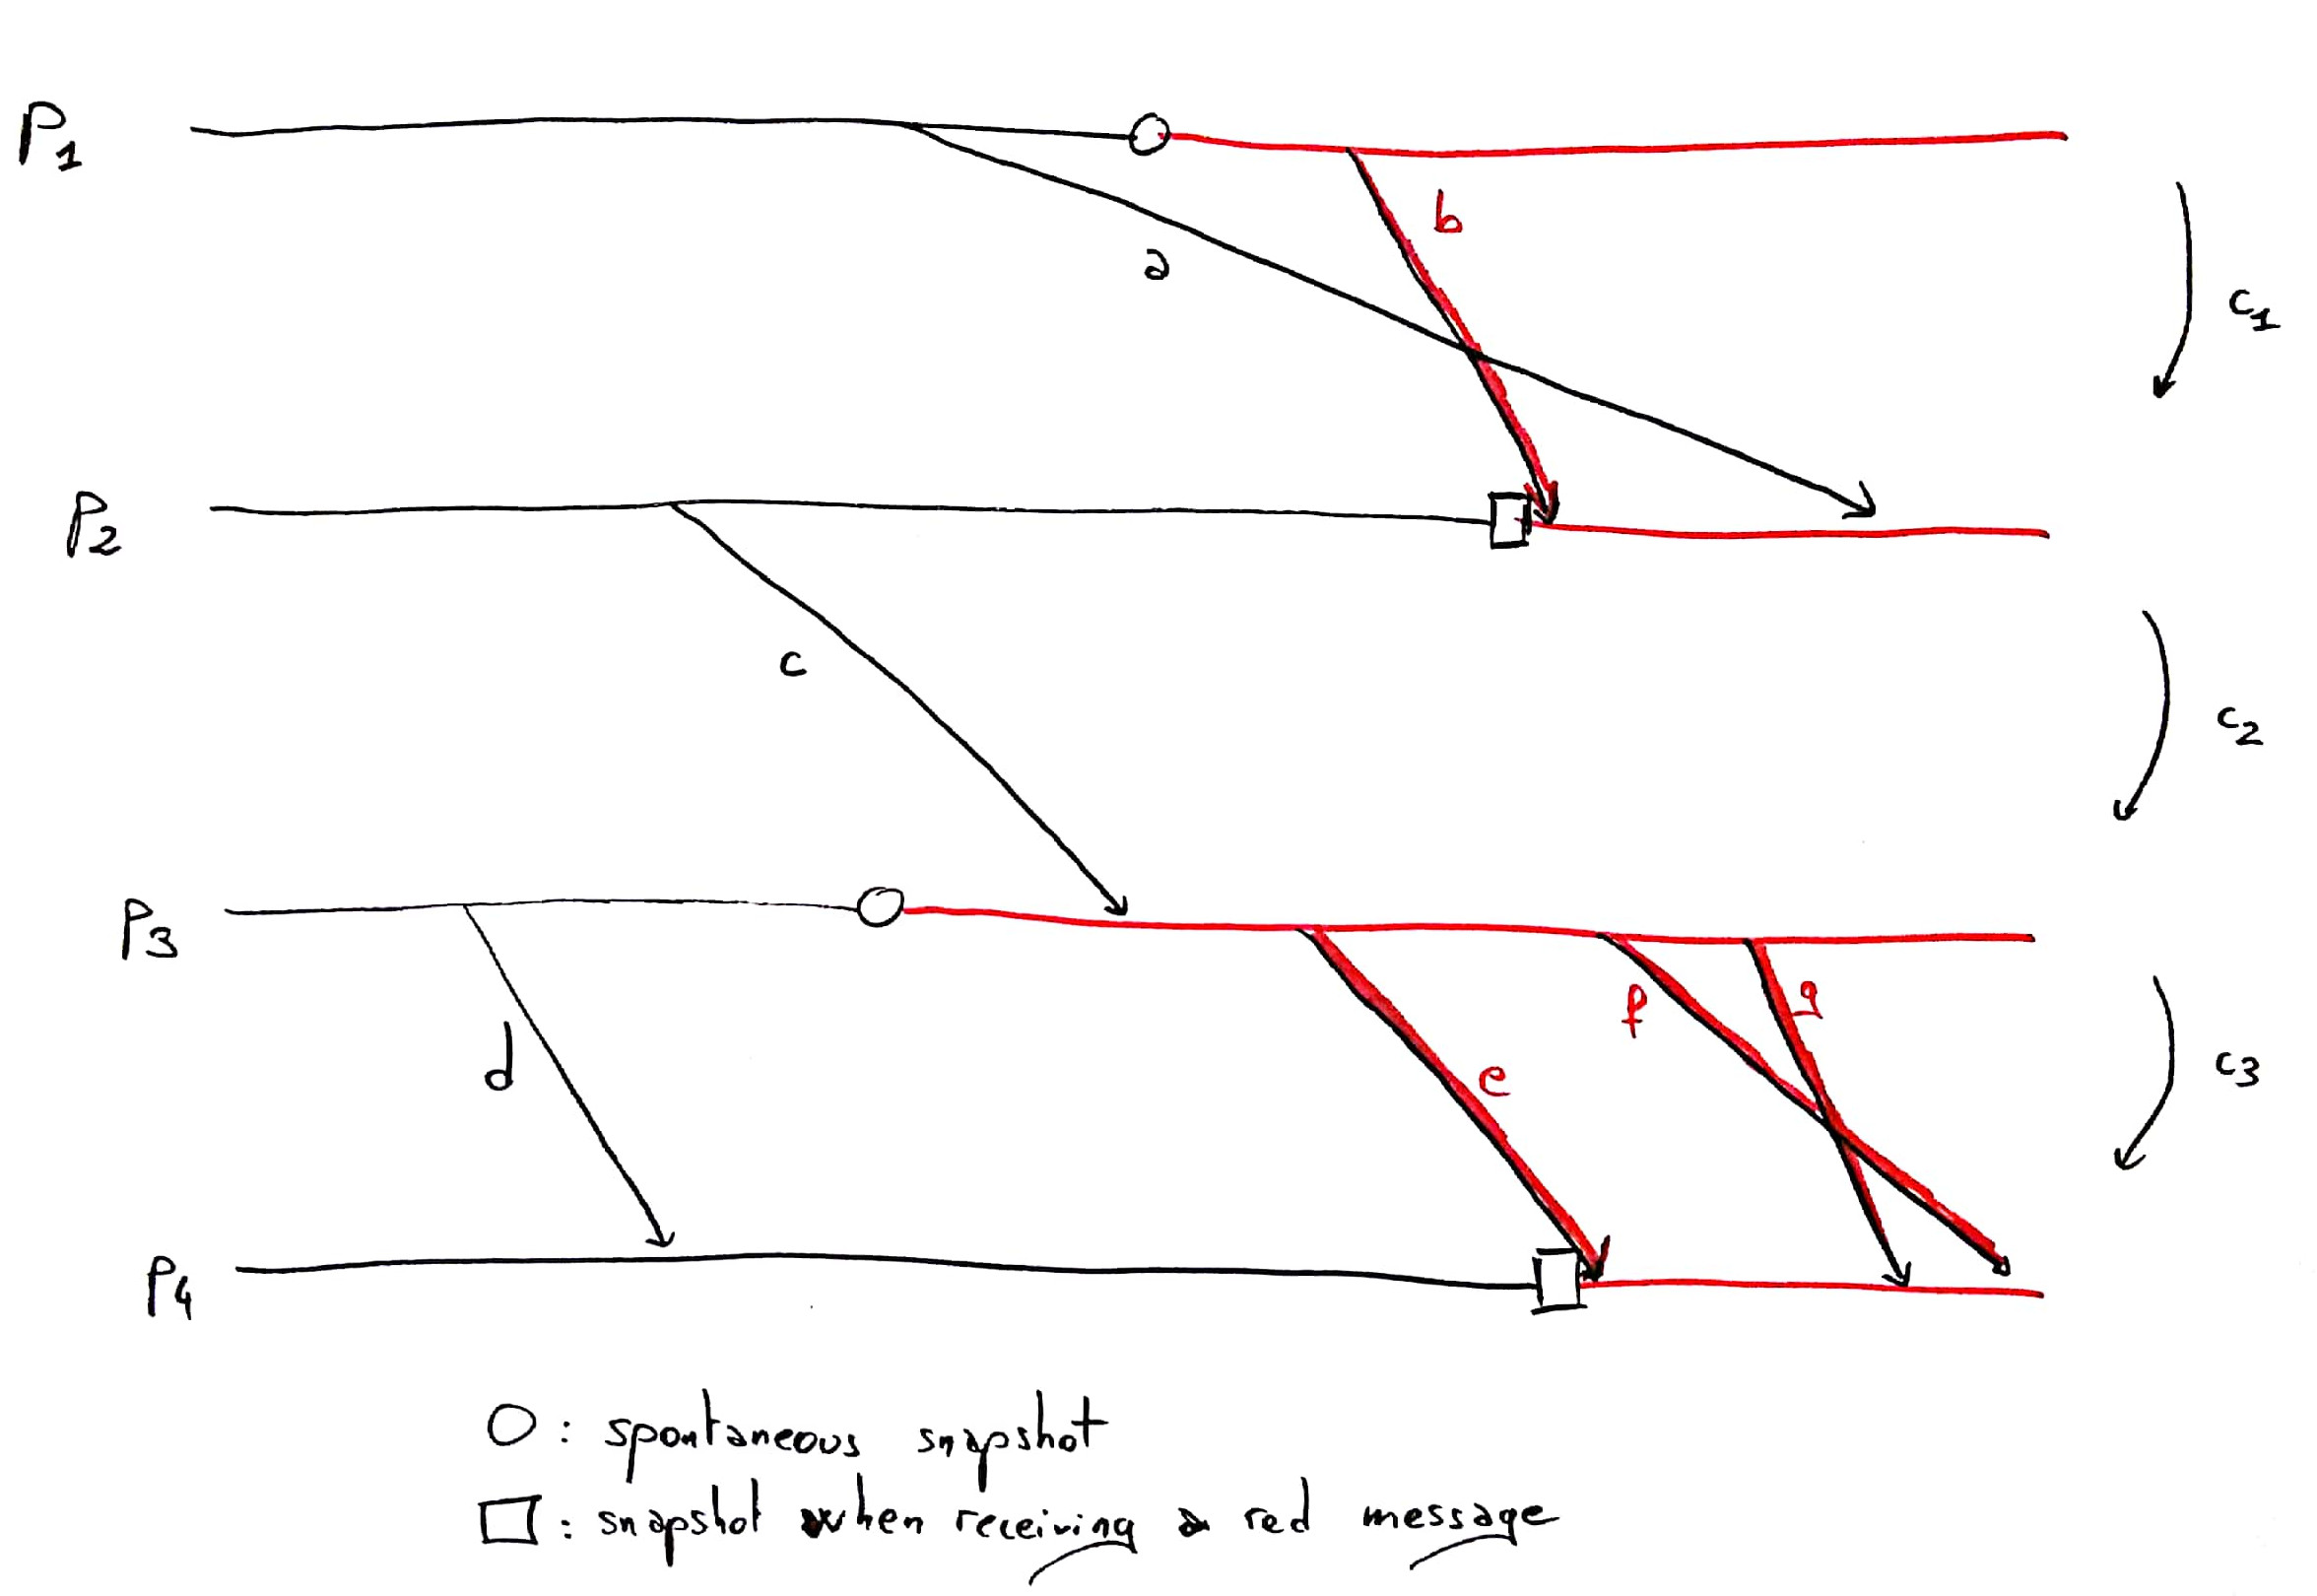 P1
b
a
c1
P2
c
c2
P3
d
e
f
g
c3
P4
O : spontaneous snapshot
□ : snapshot when receiving a red message